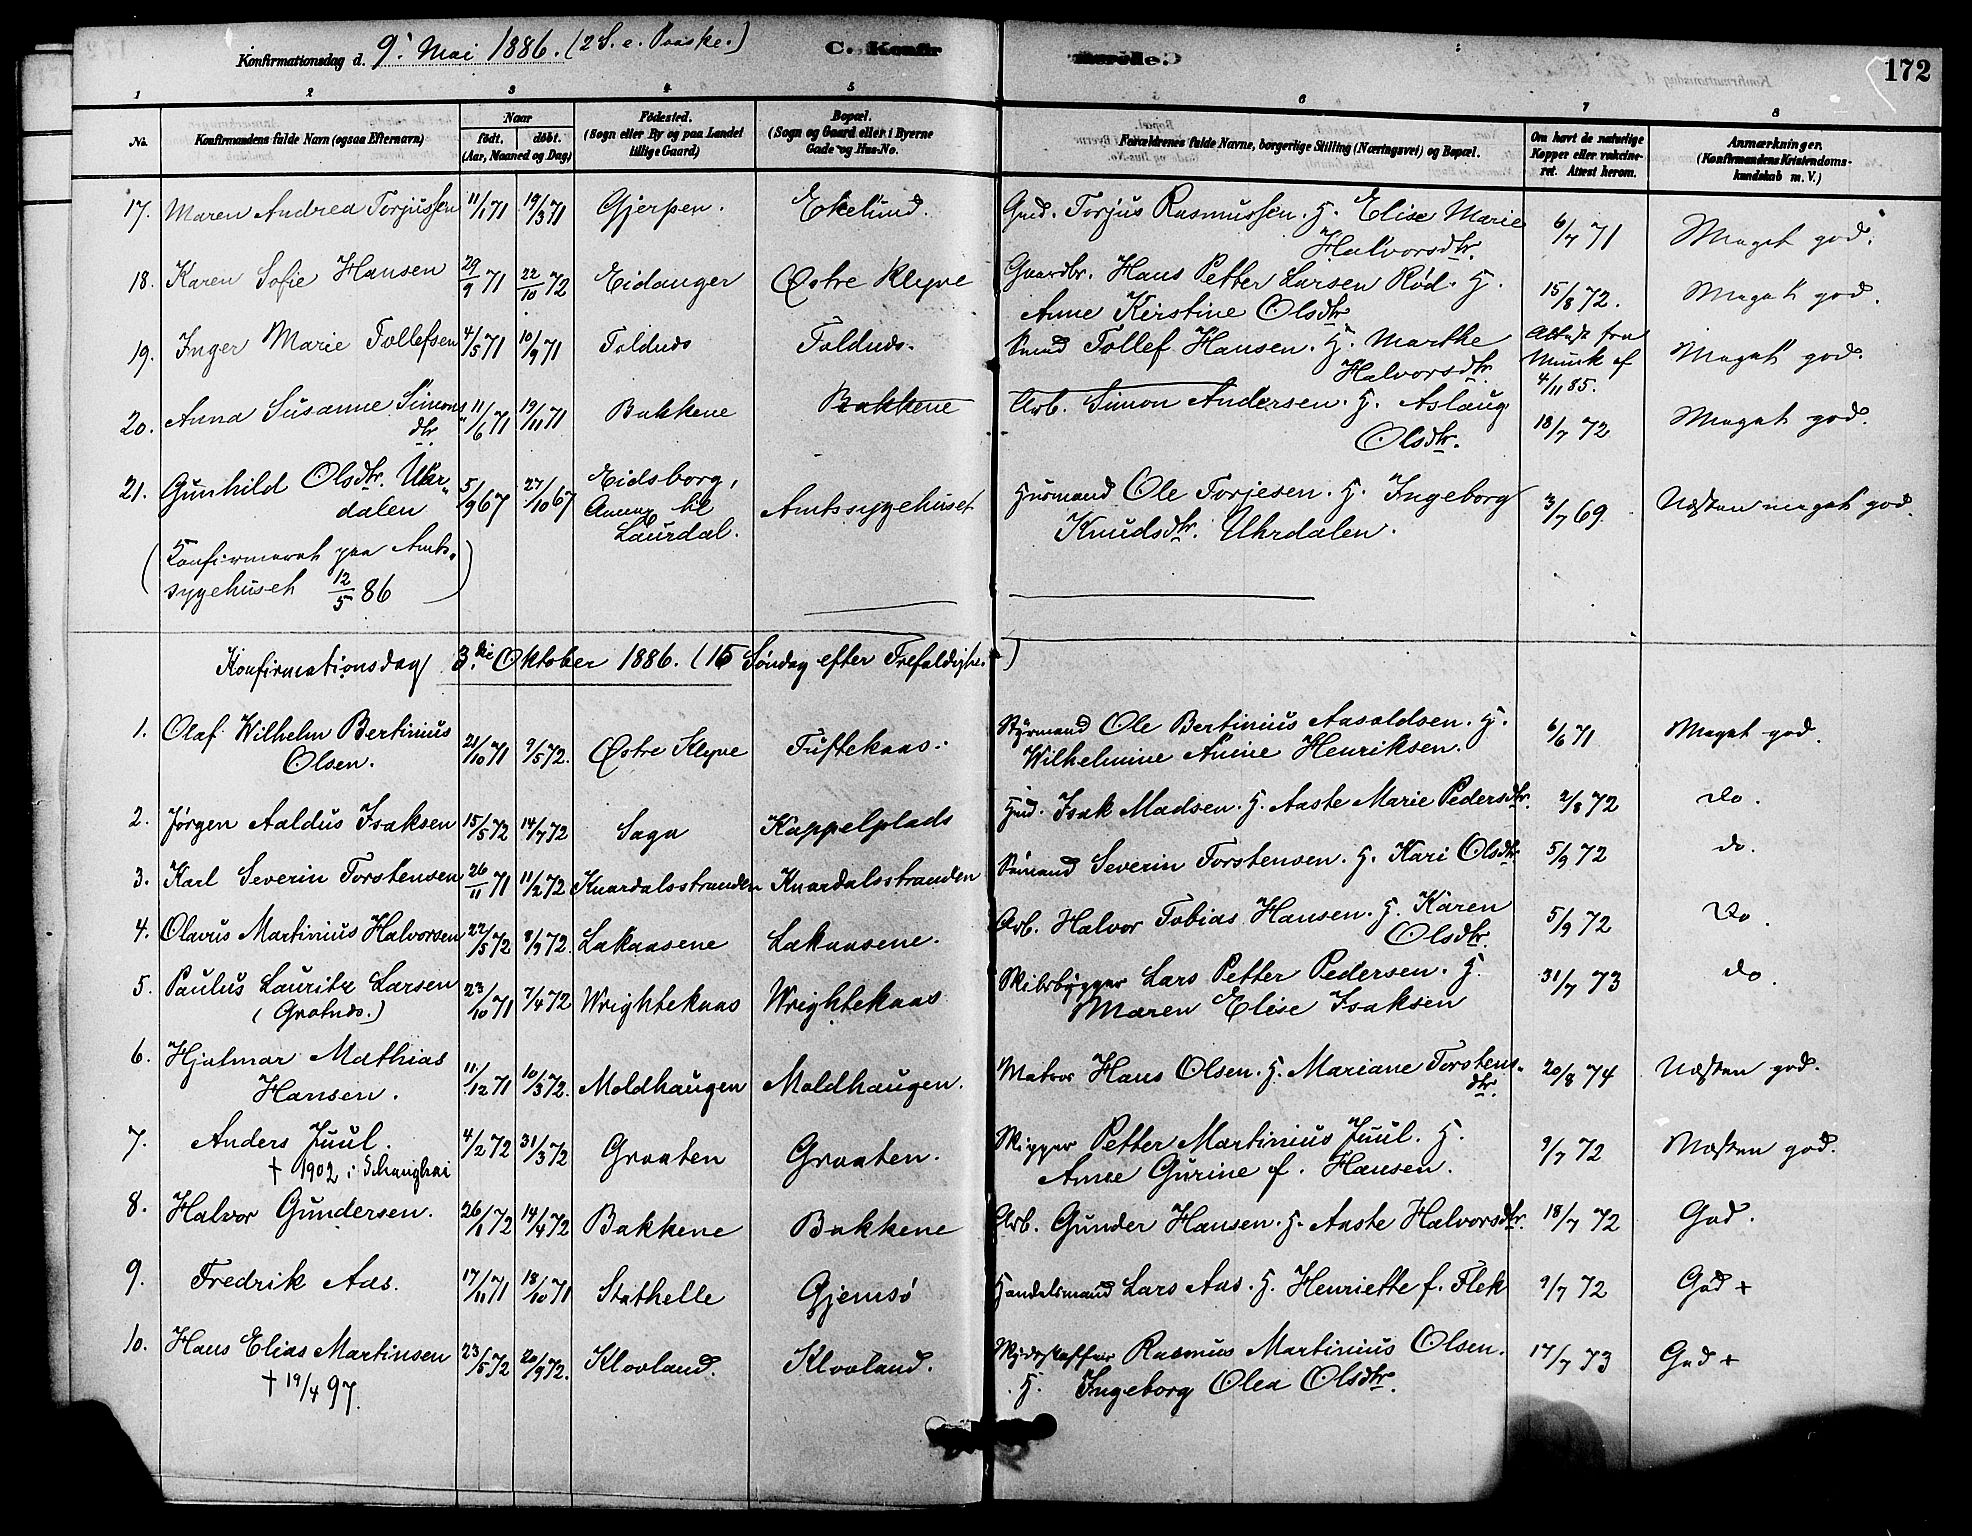 Konfirmationsdag d. 9. Mai 1886. (2 S. e. Paaske.) C. Konfir merede. 172
1 2 3 4 5 6 7 8
No. Konfirmandens fulde Navn (ogsaa Efternavn) Naar født, døbt. (Aar, Maaned og Dag) Fødested. (Sogn eller By og paa Landet tillige Gaard) Bopæl. (Sogn og Gaard eller i Byerne Gade og Hus-No. Forældrenes fulde Navne, borgerlige Stilling (Næringsvei) og Bopæl. Om havt de naturlige Kopper eller vakcineret. Attest herom. Anmærkninger. (Konfirmandens Kristendomskundskab m. V.)
17. Maren Andrea Torjussen 11/1 71 19/3 71 Gjerpen. Ekelund. Gmd. Torjus Rasmussen. H. Elise Marie
Halvorsdtr. 6/7 71 Meget god.
18. Karen Sofie Hansen 29/9 71 22/10 72 Eidanger Østre Klyve Gaardbr. Hans Petter Larsen Rød. H.
Anne Kirstine Olsdtr 15/8 72. Meget god.
19. Inger Marie Tollefsen 4/5 71 10/9 71 Foldnes Foldnes. Smed Tollef Hansen. H. Marthe
Halvorsdtr. Attest fra
Munk af
4/11 85. Meget god.
20. Anna Susanne Simons
dtr. 11/6 71 19/11 71 Bakkene Bakkene Arb. Simon Andersen. H. Aslaug
Olsdtr. 18/7 72 Meget god.
21. Gunhild Olsdtr. Uhr-
dalen 5/9 67 27/10 67 Eidsborg,
Annex til
Laurdal. Amtssygehuset Husmand Ole Torjesen. H. Ingeborg
Knudsdtr. Uhrdalen. 3/7 69. Næsten meget god.
(Konfirmeret paa Amts-
sygehuset 12/5 86)
Konfirmationsdag 3die Oktober 1886. (15 Søndag efter Trefoldigh.)
1. Olaf Wilhelm Bertinius
Olsen. 21/10 71 9/5 72. Østre Klyve Tuftekaas. Styrmand Ole Bertinius Aasoldsen. H.
Wilhelmine Anine Henriksen. 6/6 71 Meget god.
2. Jørgen Aaldus Isaksen 15/5 72 14/7 72 Saga Kappelplads Hmd. Isak Madsen. H. Aaste Marie Pedersdtr. 2/8 72 Do.
3. Karl Severin Torstensen 26/11 71 11/2 72 Knardalsstranden Knardalsstranden Sømand Severin Torstensen. H. Kari Olsdtr 5/9 72 do.
4. Olavus Martinius Halvorsen 22/5 72 8/9 72. Lakaasene Lakaasene. Arb. Halvor Tobias Hansen. H. Karen
Olsdtr. 5/9 72 Do.
5. Paulus Lauritz Larsen
(Gratnes.) 23/10 71 7/4 72 Wrightekaas Wrightekaas Skibsbygger Lars Petter Pedersen. H.
Maren Elise Isaksen 31/7 73 do.
6. Hjalmar Mathias
Hansen. 11/12 71 10/3 72. Moldhaugen Moldhaugen. Matros Hans Olsen. H. Mariane Torstens-
dtr. 20/8 74 Næsten god.
7. Anders Juul.
† 1902 i Schanghai 4/2 72 31/3 72 Graaten Graaten. Skipper Petter Martinius Juul. H.
Anne Gurine f. Hansen. 9/7 72 Næsten god.
8. Halvor Gundersen. 26/1 72 14/4 72 Bakkene Bakkene Arb. Gunder Hansen. H. Aaste Halvorsdtr. 18/7 72 God.
9. Fredrik Aas. 17/11 71 18/10 71 Stathelle Gjemsø Handelsmand Lars Aas. H. Henriette f. Flek 9/7 72 God +
10. Hans Elias Martinsen
† 19/4 97. 23/5 72 20/9 72. Klovland. Klovland. Skydsskaffer Rasmus Martinius Olsen.
H. Ingeborg Olea Olsdtr. 17/7 73 God +